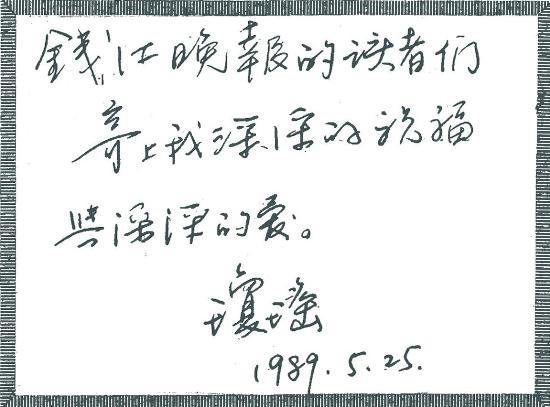 錢江晚報的读者们
寄上我深深的祝福
與深深的爱。
瓊瑤
1989.5.25.